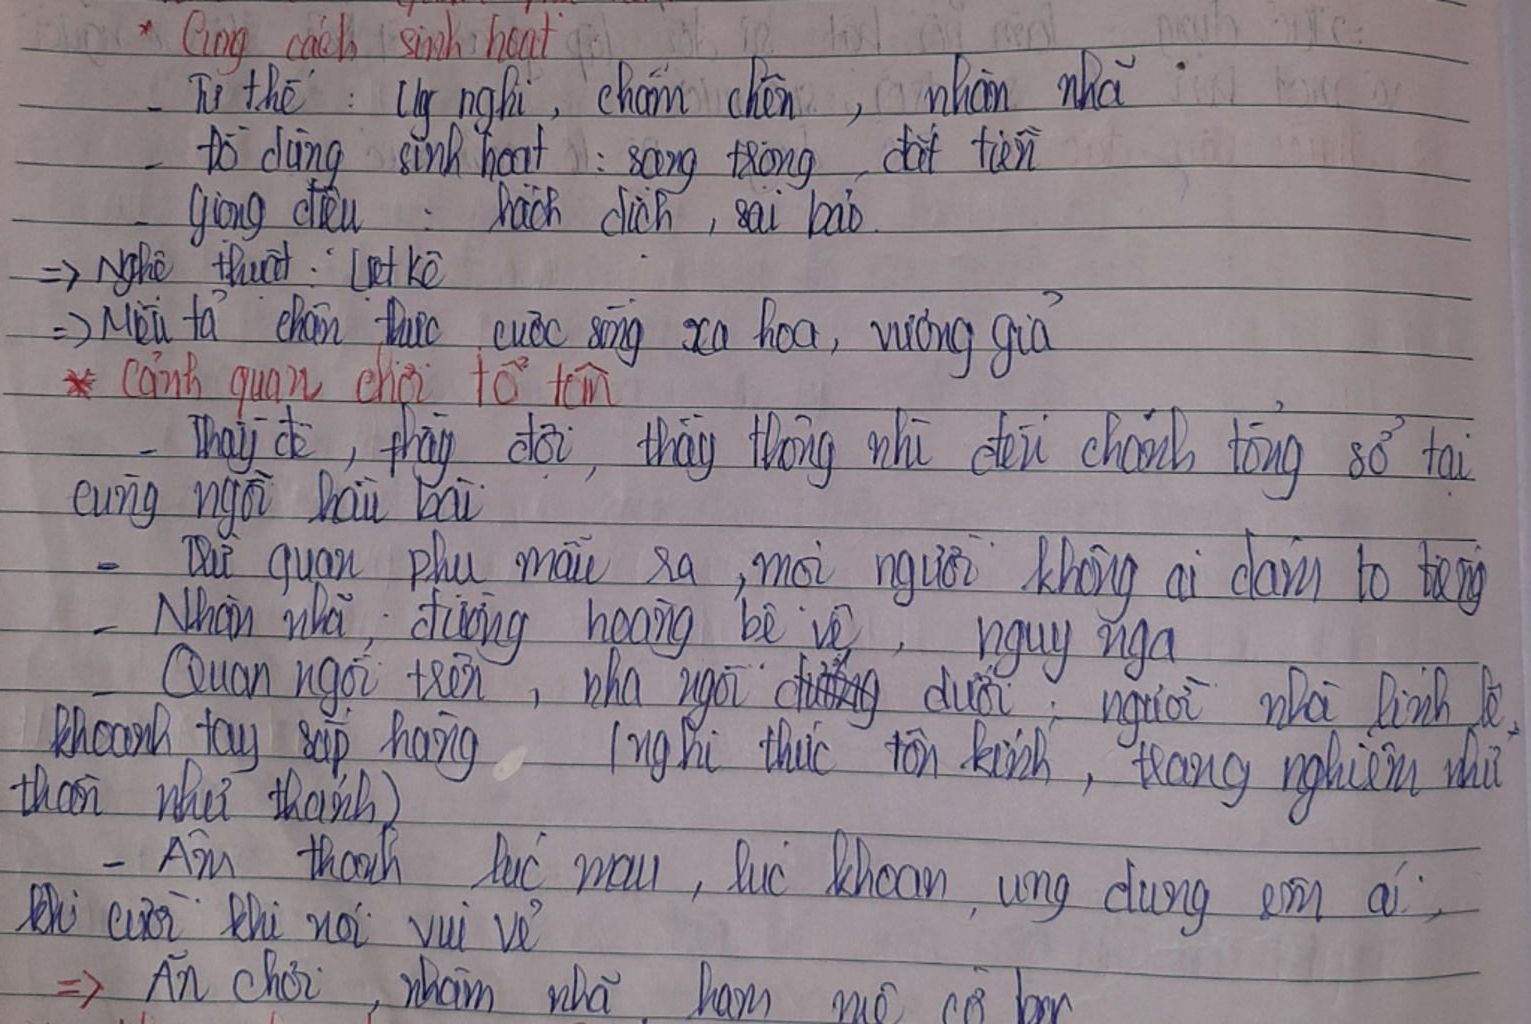 * Cung cách sinh hoạt
- Tư thế : Uy nghi, chễm chện, nhàn nhã
- Đồ dùng sinh hoạt : sang trọng, đắt tiền
- Giọng điệu : hách dịch, sai bảo.
=> Nghệ thuật : Liệt kê
=> Miêu tả chân thực cuộc sống xa hoa, vương giả
* Cảnh quan chơi tổ tôm
- Thầy đề, thầy đội, thầy thông nhì đến chánh tổng sở tại
cùng ngồi hầu bài
- Trừ quan phụ mẫu ra, mọi người không ai dám to tiếng
- Nhàn nhã, đường hoàng bệ vệ, nguy nga
- Quan ngồi trên, nha ngồi dưới, người nhà lính lệ,
khoanh tay sắp hàng (nghi thức tôn kính, trang nghiêm như
thần như thánh)
- Âm thanh lúc mau, lúc khoan, ung dung êm ái,
khi cười khi nói vui vẻ
=> Ăn chơi, nhàn nhã, ham mê cờ bạc